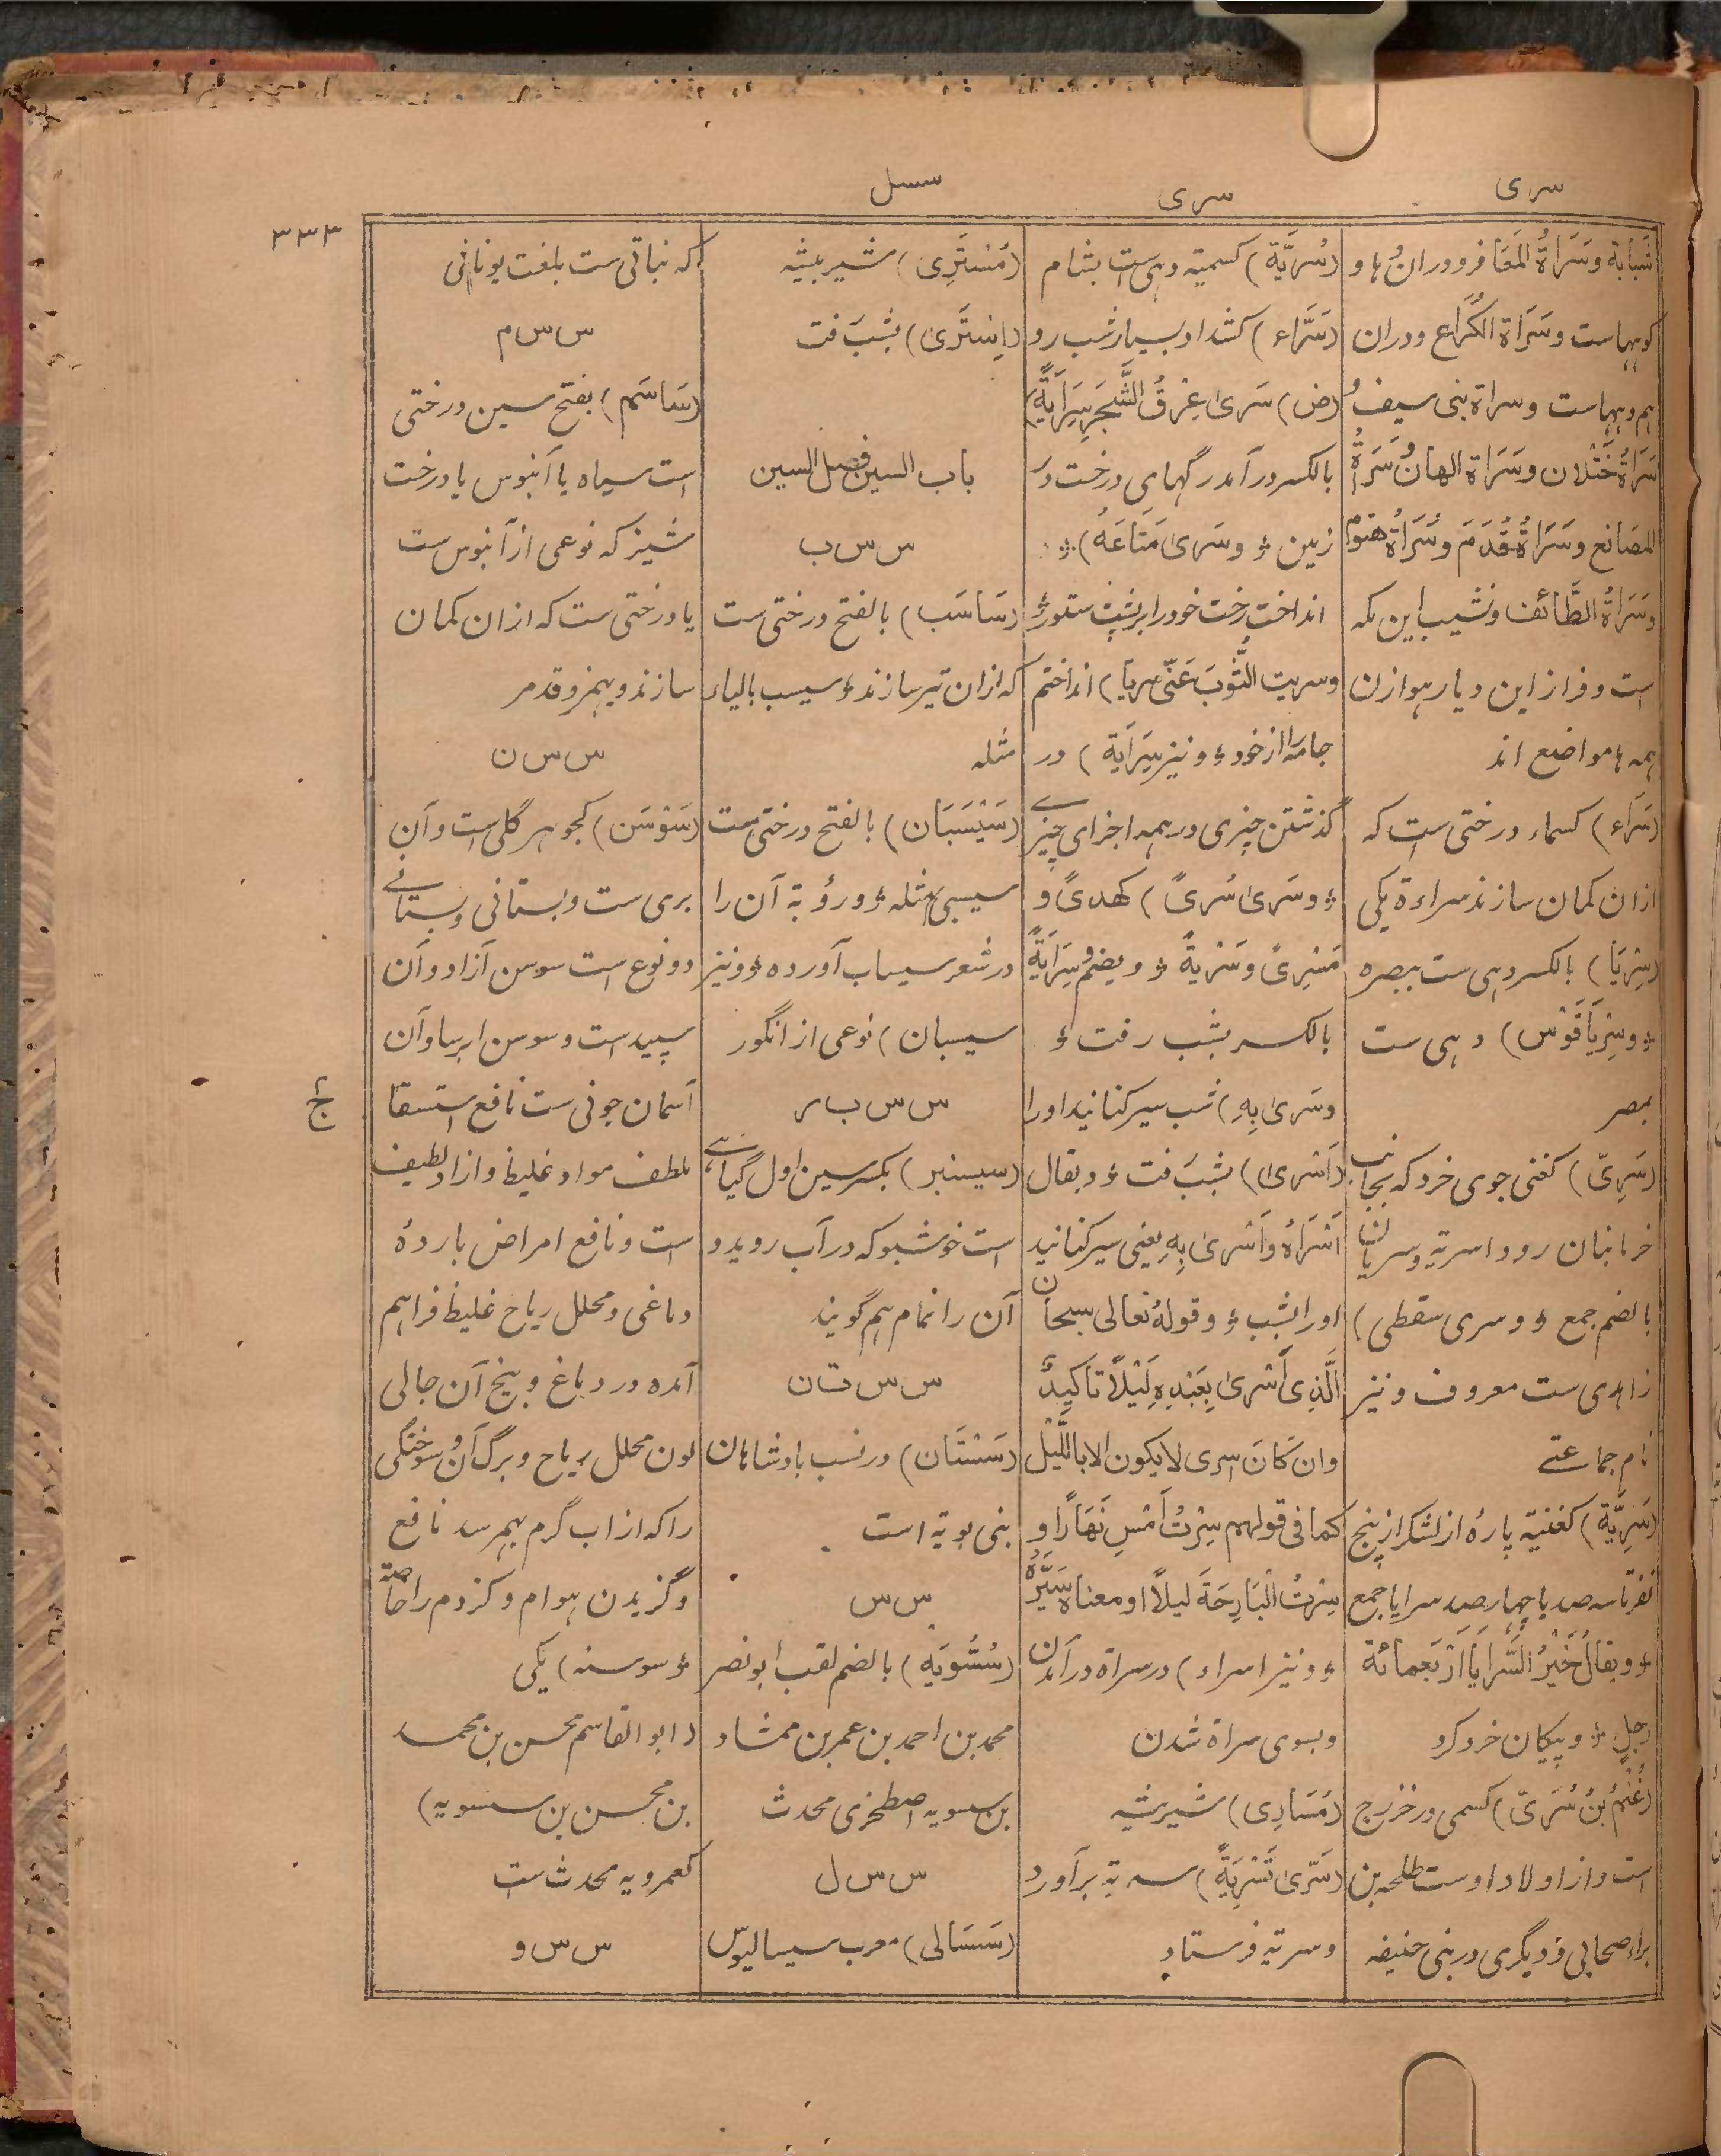 سری
سری
سسل
۳۳۳
شَبابة وسَرَاةُ المَعَافر ودران ها و
کوهها ست وسَرَاة الکُرَاع ودران
هم دهها ست وسراة بنی سیف
سَرَاةُ خَتْلان وسَرَاة الهان وسَرَاةُ
المصَانع وسَرَاةُ قُدَمَ وسَرَاةُ هتوم
وسَرَاةُ الطَّائف ونشیب این مکه
است وفراز این دیار هوازن
همه مواضع اند
(سَرَاء) کسماء درختی ست که
ازان کمان سازند سراءة یکی
(سِرْیَا) بالکسر دهی ست ببصره
؛ وسِرْیَاقَوْس) دهی ست
بمصر
(سَرِیّ) کغنی جوی خرد که بجانب
خرمابنان رود اسریة وسریان
بالضم جمع ؛ وسری سقطی)
زاهدی ست معروف ونیز
نام جماعتے
(سَرِیَّة) کغنیة پارهٔ از لشکر از پنج
نفر تا سه صد یا چهار صد سرایا جمع
؛ ویقالُ خَیْرُ السَّرایَا اَرْبَعمائة
رجلٍ ؛ وپیکان خرد گرد
(غُنْمُ بنُ سُرَیّ) کسمی در خزرج
است واز اولاد اوست طلحه بن
براء صحابی ودیگری در بنی حنیفه
(سُرَیَّة) کسمیة دهی ست بشام
(سَرَّاء) کشداد بسیار شب رو
(ض) سَریٰ عِرْقُ الشَّجَرِ سِرَایَةً)
بالکسر در آمد رگهای درخت در
زمین ؛ وسَریٰ مَتَاعَهُ) ؛
انداخت رخت خود را بر پشت ستور ؛
وسریت الثَّوبَ عَنّی سریا) انداختم
جامه را از خود ؛ ونیز سِرَایَة) در
گذشتن چیزی در همه اجزای چیزے
؛ وسَریٰ سُریً) کهدیً و
مَسْریً وسَرْیةً ؛ ویضم سِرَایَةً
بالکسر بشب رفت ؛
وسَریٰ بِهِ) شب سیر کنانید اورا
(اَسْریٰ) بشب رفت ؛ ویقال
اَسْرَاهُ واَسْریٰ بِهِ یعنی سیر کنانید
اورا بشب ؛ وقولهُ تعالی سبحان
الَّذِی اَسْریٰ بِعَبْدِهِ لَیْلاً تاکیدٌ
وان کَانَ اسری لا یکون الا باللَّیْل
کما فی قولهم سِرْتُ اَمْسِ نَهَارًا و
سِرْتُ الْبَارِحَةَ لیلاً او معناه سَیَّرَهُ
؛ ونیز اسراء) در سراة در آمدن
وبسوی سراة شدن
(مُسَارِی) شیر بیشه
(سَرّیٰ تَسْرِیَةً) سریه برآورد
وسریه فرستاد
(مُسْتَرِی) شیر بیشه
(اِسْتَریٰ) بشب رفت
باب السین فصل السین
س س ب
(سَاسَب) بالفتح درختی ست
که ازان تیر سازند ؛ سیسب بالیاء
مثله
(سَیْسَبَان) بالفتح درختی ست
سیسبی مثله ؛ ورؤبة آن را
در شعر سیساب آورده ؛ ونیز
سیسبان) نوعی از انگور
س س ب ر
(سیسنبر) بکسر سین اول گیاهے
است خوشبو که در آب روید و
آن را نمام هم گویند
س س ت ا ن
(سَسْتَان) در نسب بادشاهان
بنی بویه است
س س
(سُسُّویَه) بالضم لقب ابو نصر
محمد بن احمد بن عمر بن ممشاد
بن سسویه اصطخری محدث
س س ل
(سَسَالی) معرب سیسالیوس
که نباتی ست بلغت یونانی
س س م
(سَاسَم) بفتح سین درختی
است سیاه یا آبنوس یا درخت
شیز که نوعی از آبنوس ست
یا درختی ست که ازان کمان
سازند ویهمز وقد مر
س س ن
(سَوْسَن) کجوهر گلی ست وآن
بری ست وبستانی وبستانے
دو نوع است سوسن آزاد وآن
سپید است وسوسن ایرسا وآن
آسمان جونی ست نافع استسقا
ج
ملطف مواد غلیظ وازاد لطیف
است ونافع امراض باردهٔ
دماغی ومحلل ریاح غلیظ فراهم
آمده در دماغ وبیخ آن جالی
لون محلل ریاح وبرگ آن سوختگی
را که از آب گرم بهم رسد نافع
وگزیدن هوام وکژدم را خاصة
؛ سوسنه) یکی
(ابو القاسم محسن بن محمد
بن محسن بن سسویه)
کعمرویه محدث ست
س س و